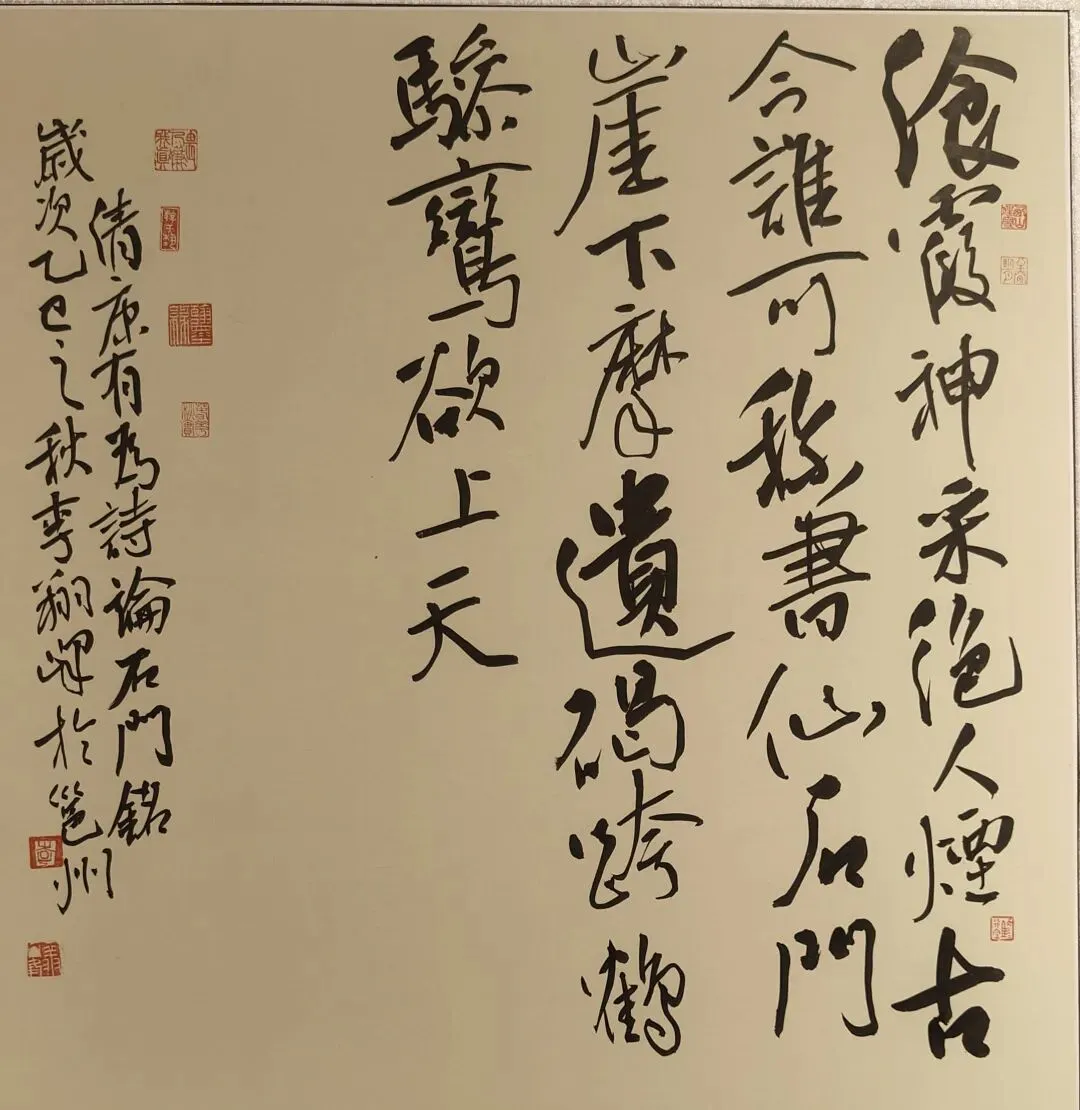 湌霞神采絶人煙古
今誰可称書仙石門
崖下摩遺碣跨鶴
驂鸞欲上天
清康有為詩論石門銘
歲次乙巳之秋李翔峰於邕州